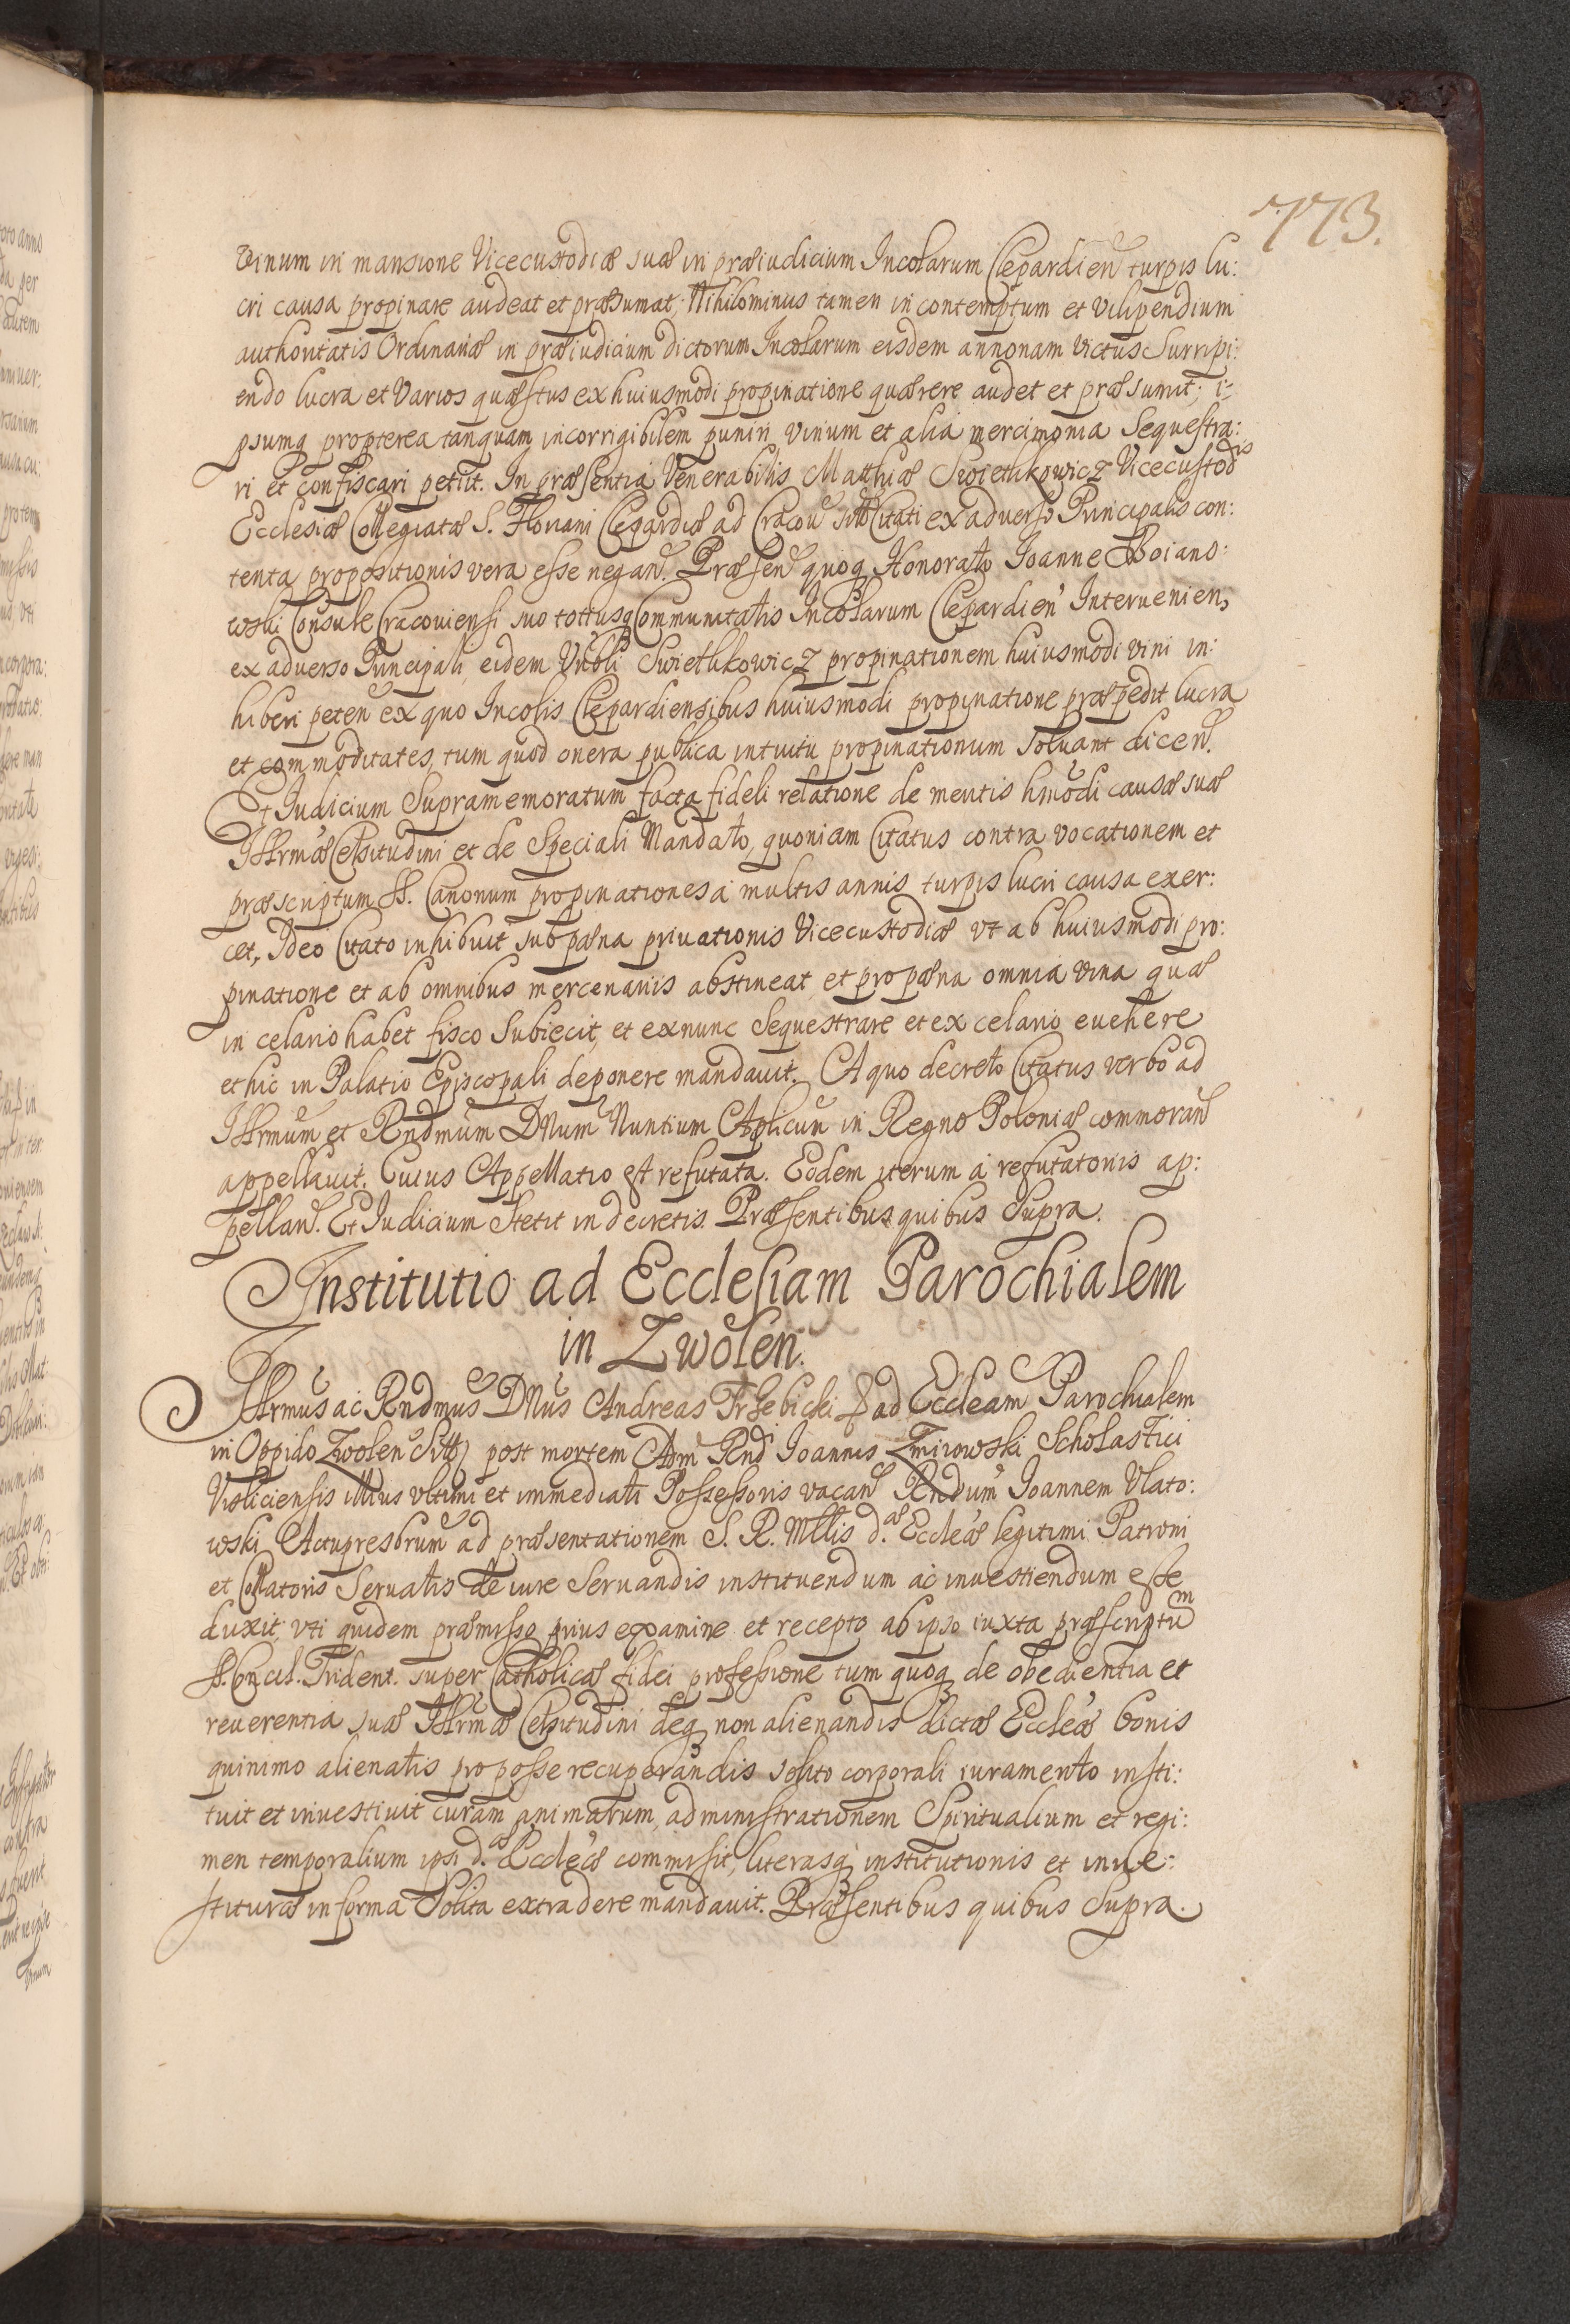 773.
Vinum in mansione Vicecustodiæ suæ in præiudicium Incolarum Clepardien turpis lu:
cri causa propinare audeat et præsumat; Nihilominus tamen in contemptum et vilipendium
authoritatis Ordinariæ in præiudicium dictorum Incolarum eisdem annonam victus Surripi:
endo lucra et varios quæstus ex huiusmodi propinatione quærere audet et præsumit; i:
psumq propterea tanquam incorrigibilem puniri vinum et alia mercimonia Sequestra:
ri et confiscari petiit. In præsentia Venerabilis Matthiæ Swiethkowicz Vicecustodis
Ecclesiæ Collegiatæ S. Floriani Clepardiæ ad Cracou sitt Citati ex aduerso Principalis con:
tenta propositionis vera esse negan. Præsen quoq Honorato Ioanne Boiano:
wski Consule Cracouiensi suo totiusq Communitatis Incolarum Clepardien Interuenien,
ex aduerso Principali eidem Vnbli Swiethkowicz propinationem huiusmodi vini in:
hiberi peten ex quo Incolis Clepardiensibus huiusmodi propinatione præpedit lucra
et commoditates, tum quod onera publica intuitu propinationum soluant dicen.
Et Iudicium Supramemoratum facta fideli relatione de meritis hmodi causæ suæ
Illrmæ Celsitudini et de Speciali Mandato, quoniam Citatus contra vocationem et
præscriptum SS. Canonum propinationes a multis annis turpis lucri causa exer:
cet, Ideo Citato inhibuit sub pæna priuationis Vicecustodiæ vt ab huiusmodi pro:
pinatione et ab omnibus mercenariis abstineat, et pro pæna omnia vina quæ
in celario habet fisco Subiecit, et exnunc Sequestrare et ex celario euehere
et hic in Palatio Episcopali deponere mandauit. A quo decreto Citatus verbo ad
Illrmum et Rndmum Dnum Nuntium Aplicum in Regno Poloniæ commoran
appellauit. Cuius Appellatio est refutata. Eodem iterum a refutatoriis ap:
pellan. Et Iudicium Stetit in decretis. Præsentibus quibus Supra.
Institutio ad Ecclesiam Parochialem
in Zwolen.
Illrmus ac Rndmus Dnus Andreas Trzebicki ad Eccleam Parochialem
in Oppido Zwolen Sitt post mortem Adm Rnd Ioannis Zmirowski Scholastici
Visliciensis illius vltimi et immediati Possessoris vacan Rndum Ioannem Vlato:
wski Actupresbrum ad præsentationem S. R. Mttis d.æ Eccleæ legitimi Patroni
et Collatoris Seruatis de iure Seruandis instituendum ac inuestiendum esse
duxit, vti quidem præmisso prius examine et recepto ab ipso iuxta præscriptum
SS. Concil. Trident. super Catholicæ fidei professione tum quoq de obedientia et
reuerentia suæ Illrmæ Celsitudini deq non alienandis dictæ Eccleæ bonis
quinimo alienatis pro posse recuperandis solito corporali iuramento insti:
tuit et inuestiuit curam animarum, administrationem Spiritualium et regi:
men temporalium ipsi d.æ Eccleæ commisit, literasq institutionis et inue:
stituræ in forma Solita extradere mandauit. Præsentibus quibus Supra.